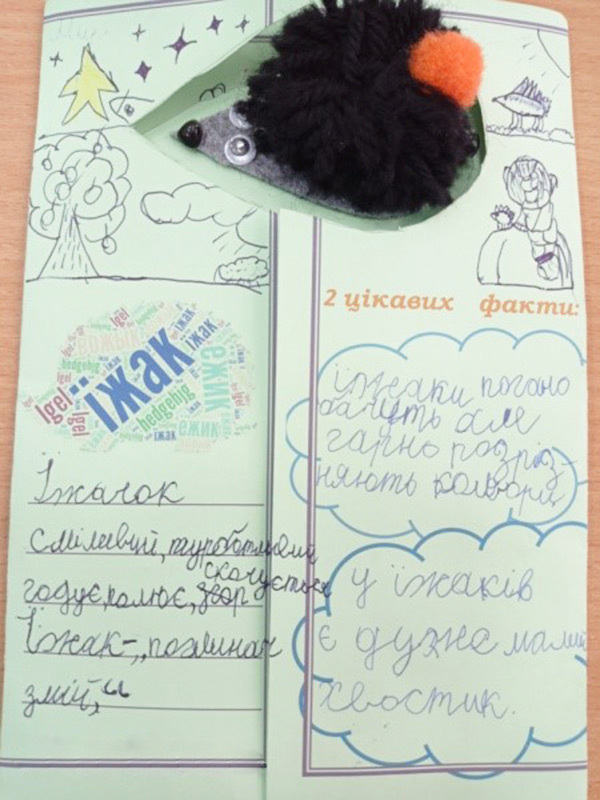 їжак
Igel
Igel
Igel
hedgehog
hedgehog
ёжик
ежик
їжак
їжак
Їжачок
сміливий, турботливий
годує, колює, згор
скачується
Їжак - „поглинач
змій,“
2 цікавих факти:
їжаки погано
бачуть але
гарно розріз-
няють кольори
У їжаків
є дуже малий
хвостик.